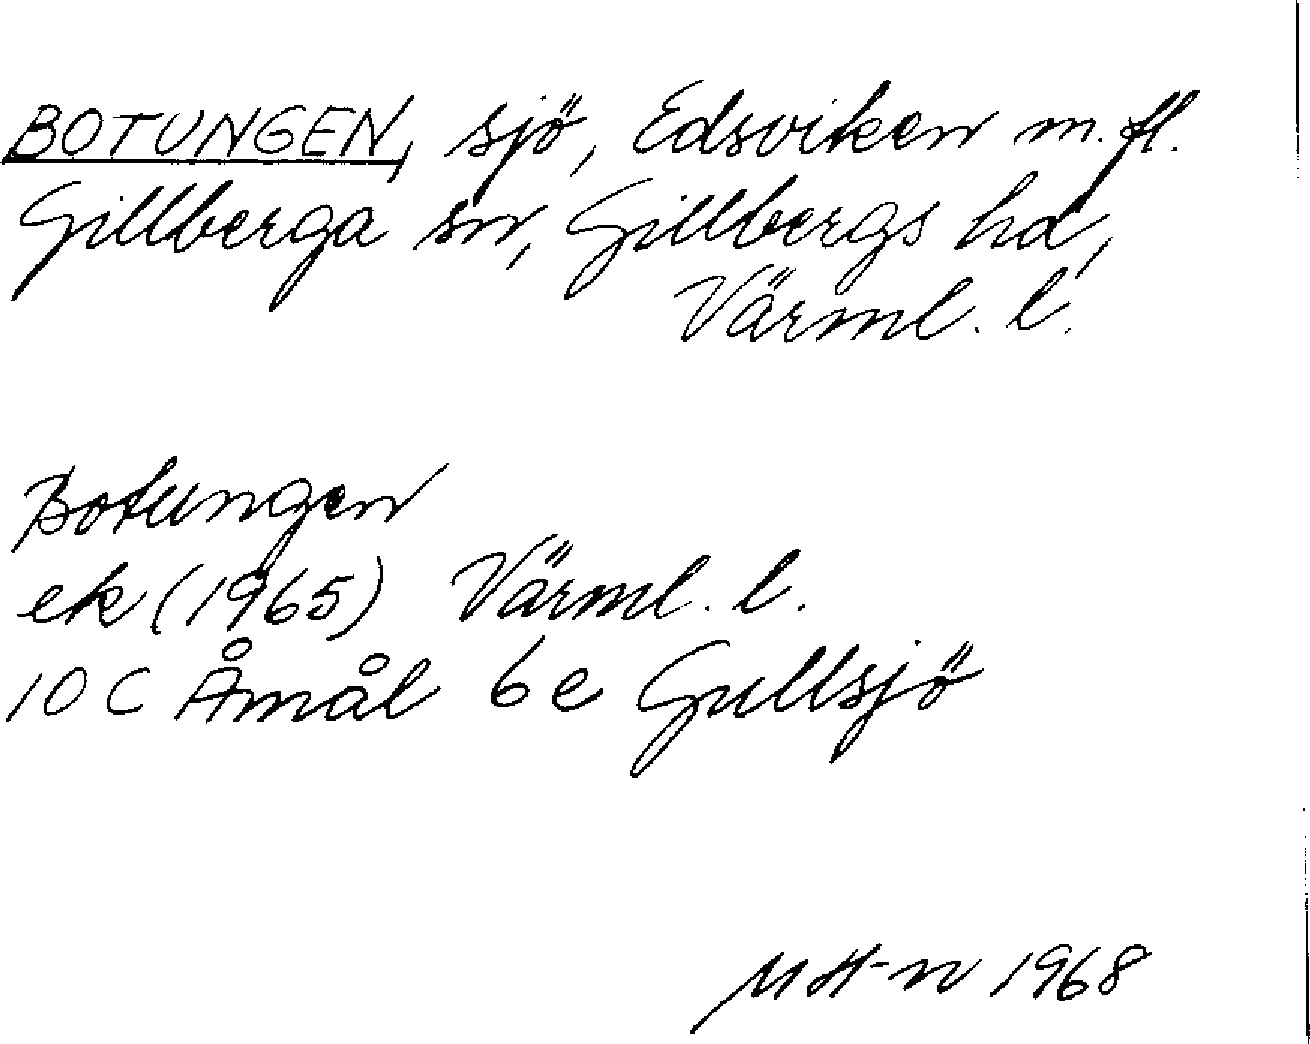 BOTUNGEN, sjö, Edsviken m.fl.
Gillberga sn, Gillbergs hd,
Värml. l.
Botungen
ek (1965) Värml. l.
10 C Åmål 6e Gullsjö
MH-n 1968